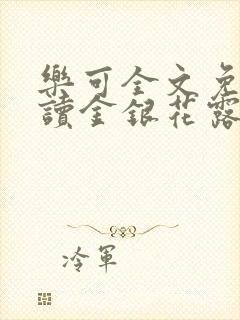 樂可全文免
讀金銀花露
冷軍